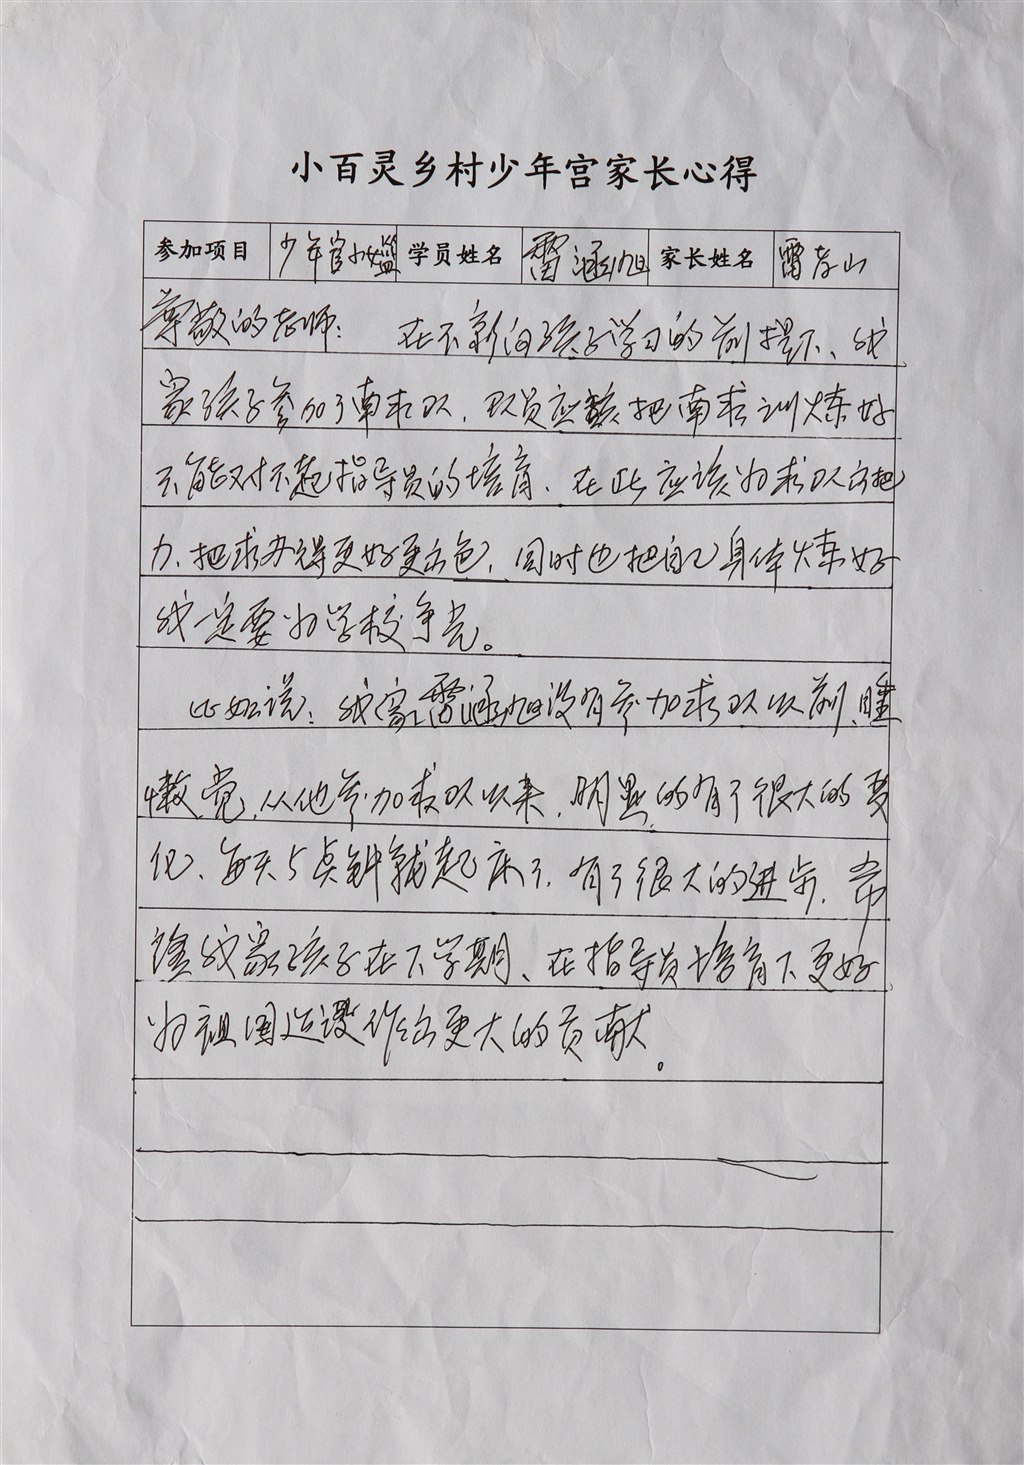 小百灵乡村少年宫家长心得
参加项目 少年宫 学员姓名 雷涵旭 家长姓名 雷 山
尊敬的老师: 在不影响孩子学习的前提下、我
家孩子参加了南求队,队员应该把南求训炼好
不能对不起指导员的培育、在此应该为求队
力、把求办得更好更出色,同时也把自己身体炼好
我一定要为学校争光。
比如说:我家雷涵旭没有参加求队以前、睡
懒觉,从他参加求队以来,明显的有了很大的变
化、每天5点钟就起床了,有了很大的进步,希
我家孩子在下学期、在指导员培育下更好
为祖国 作出更大的贡献。